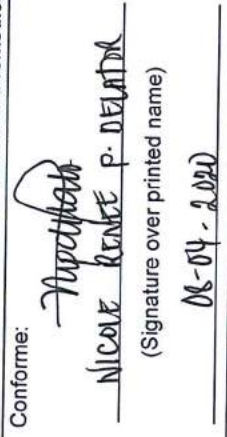 Conforme:
NICOLE RENEE P. DELATOR
(Signature over printed name)
08-04-2020